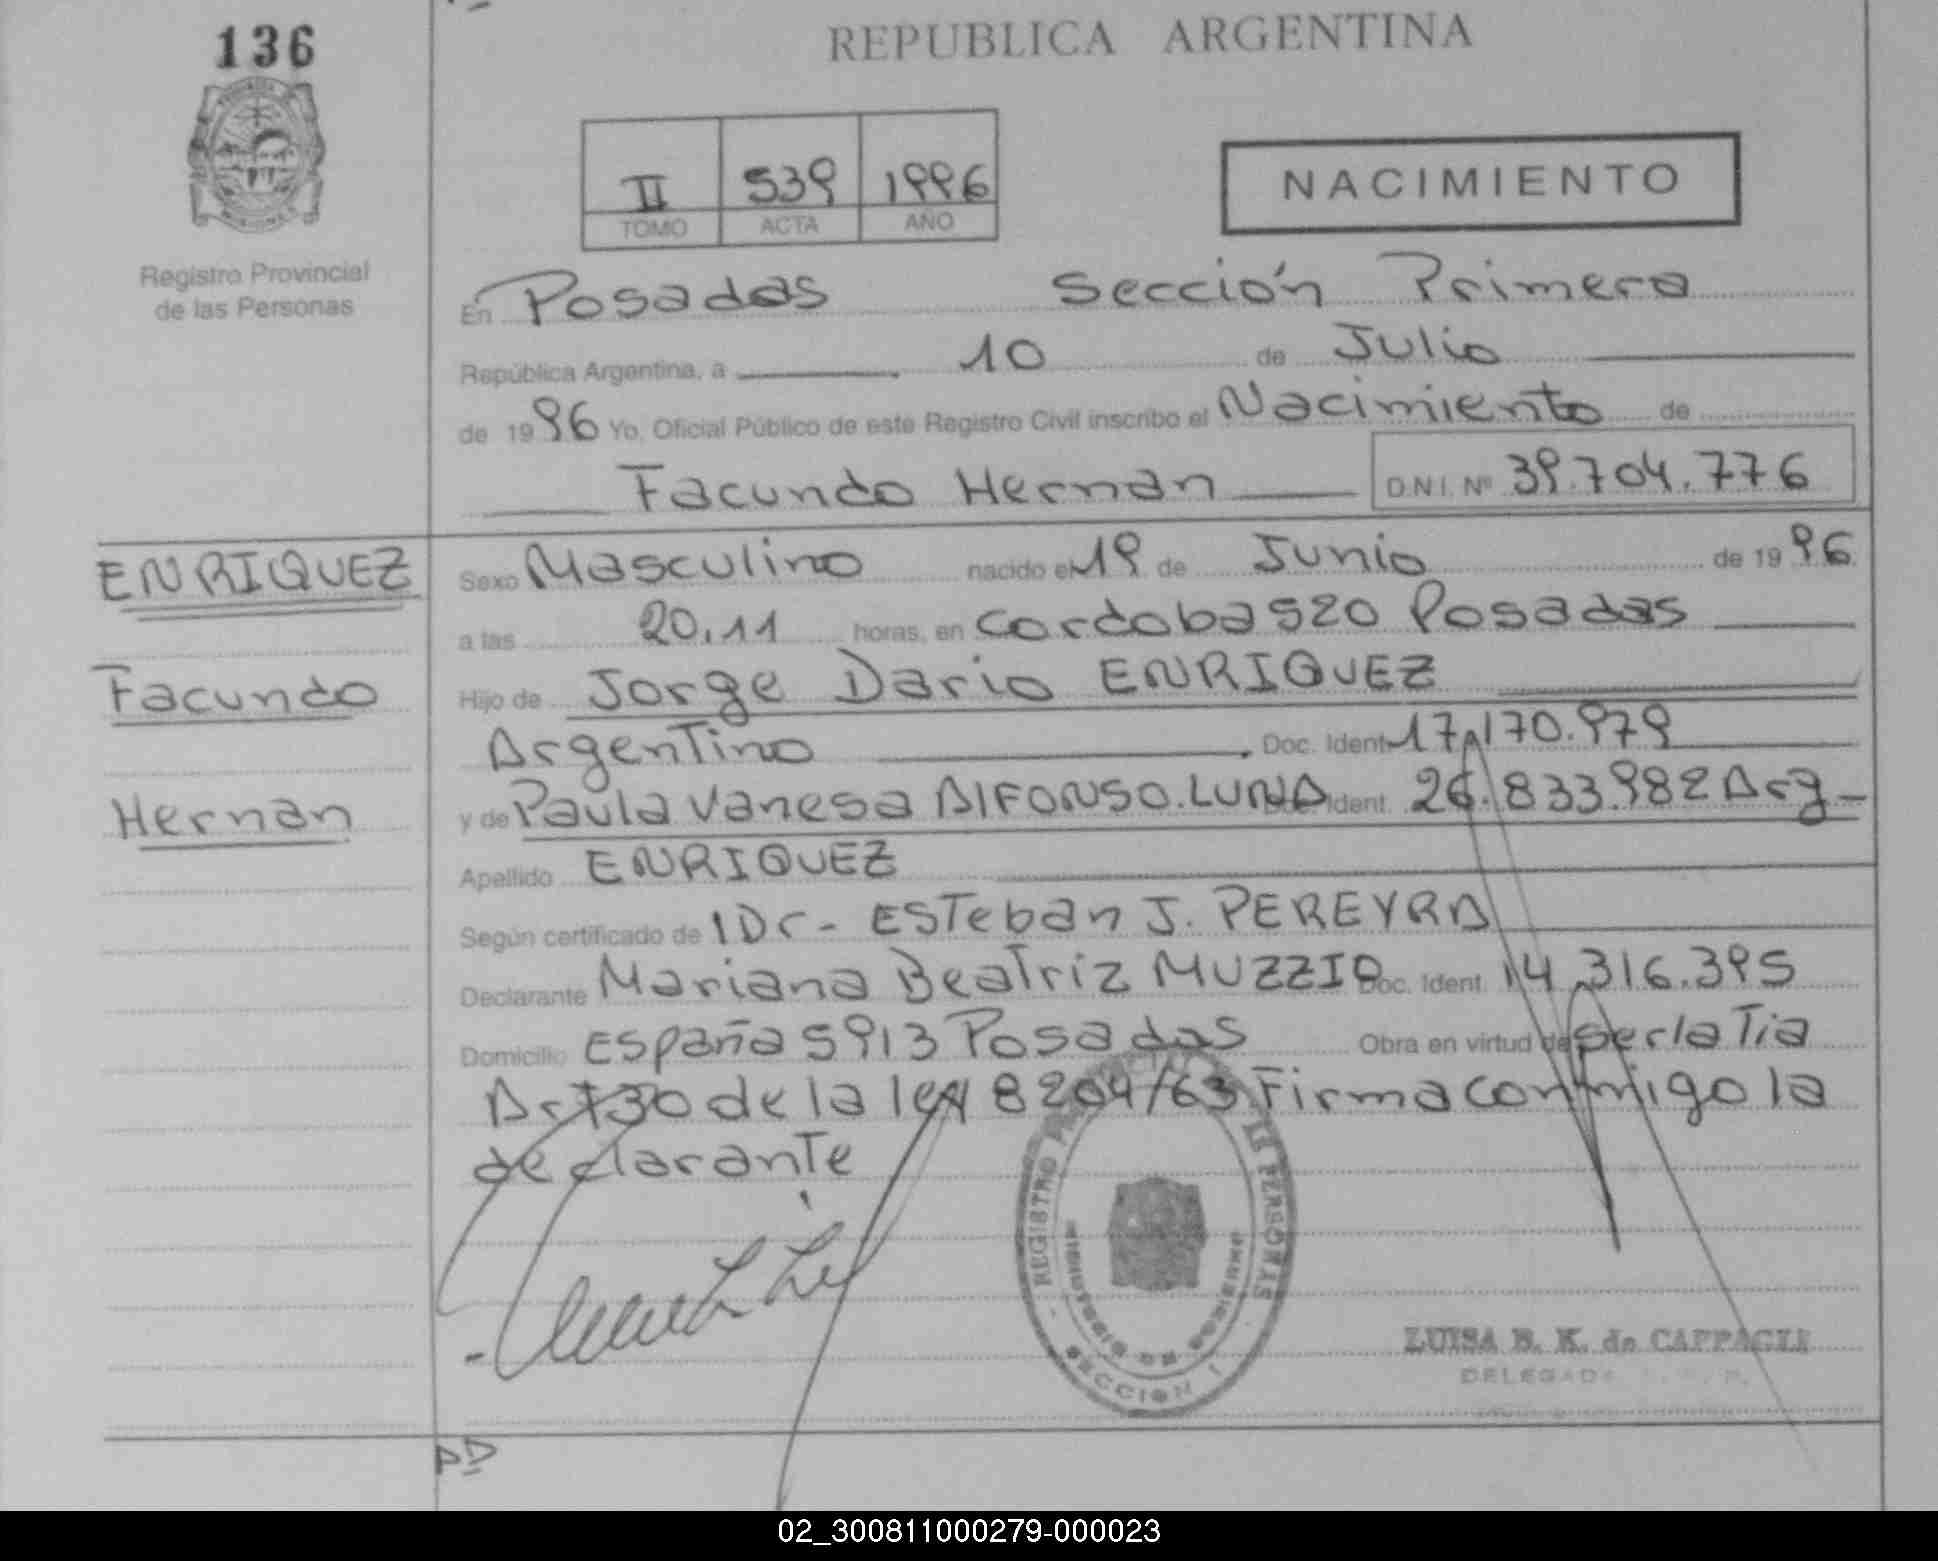 136
REPUBLICA ARGENTINA
II 539 1996
TOMO ACTA AÑO
NACIMIENTO
Registro Provincial
de las Personas
En Posadas Sección Primera
República Argentina, a 10 de Julio
de 1996 Yo, Oficial Público de este Registro Civil inscribo el Nacimiento de
Facundo Hernan D.N.I. Nº 39.704.776
ENRIQUEZ
Facundo
Hernan
Sexo Masculino nacido el 19 de Junio de 1996.
a las 20,11 horas, en Cordoba 520 Posadas
Hijo de Jorge Dario ENRIQUEZ
Argentino Doc. Ident. 17.170.979
y de Paula Vanesa AlFONSO.LUNA Doc. Ident. 26.833.982 Arg-
Apellido ENRIQUEZ
Según certificado de l Dr- ESTeban J. PEREYRA
Declarante Mariana BeaTriz MUZZIO Doc. Ident. 14.316.395
Domicilio España 5913 Posadas Obra en virtud de ser la Tia
Art 30 de la ley 8204/63 Firma conmigo la
declaranTe
REGISTRO DE LAS PERSONAS
MINISTERIO DE GOBIERNO
SECCION 1
LUISA B. K. de CAPPAGLI
DELEGADA
02_300811000279-000023